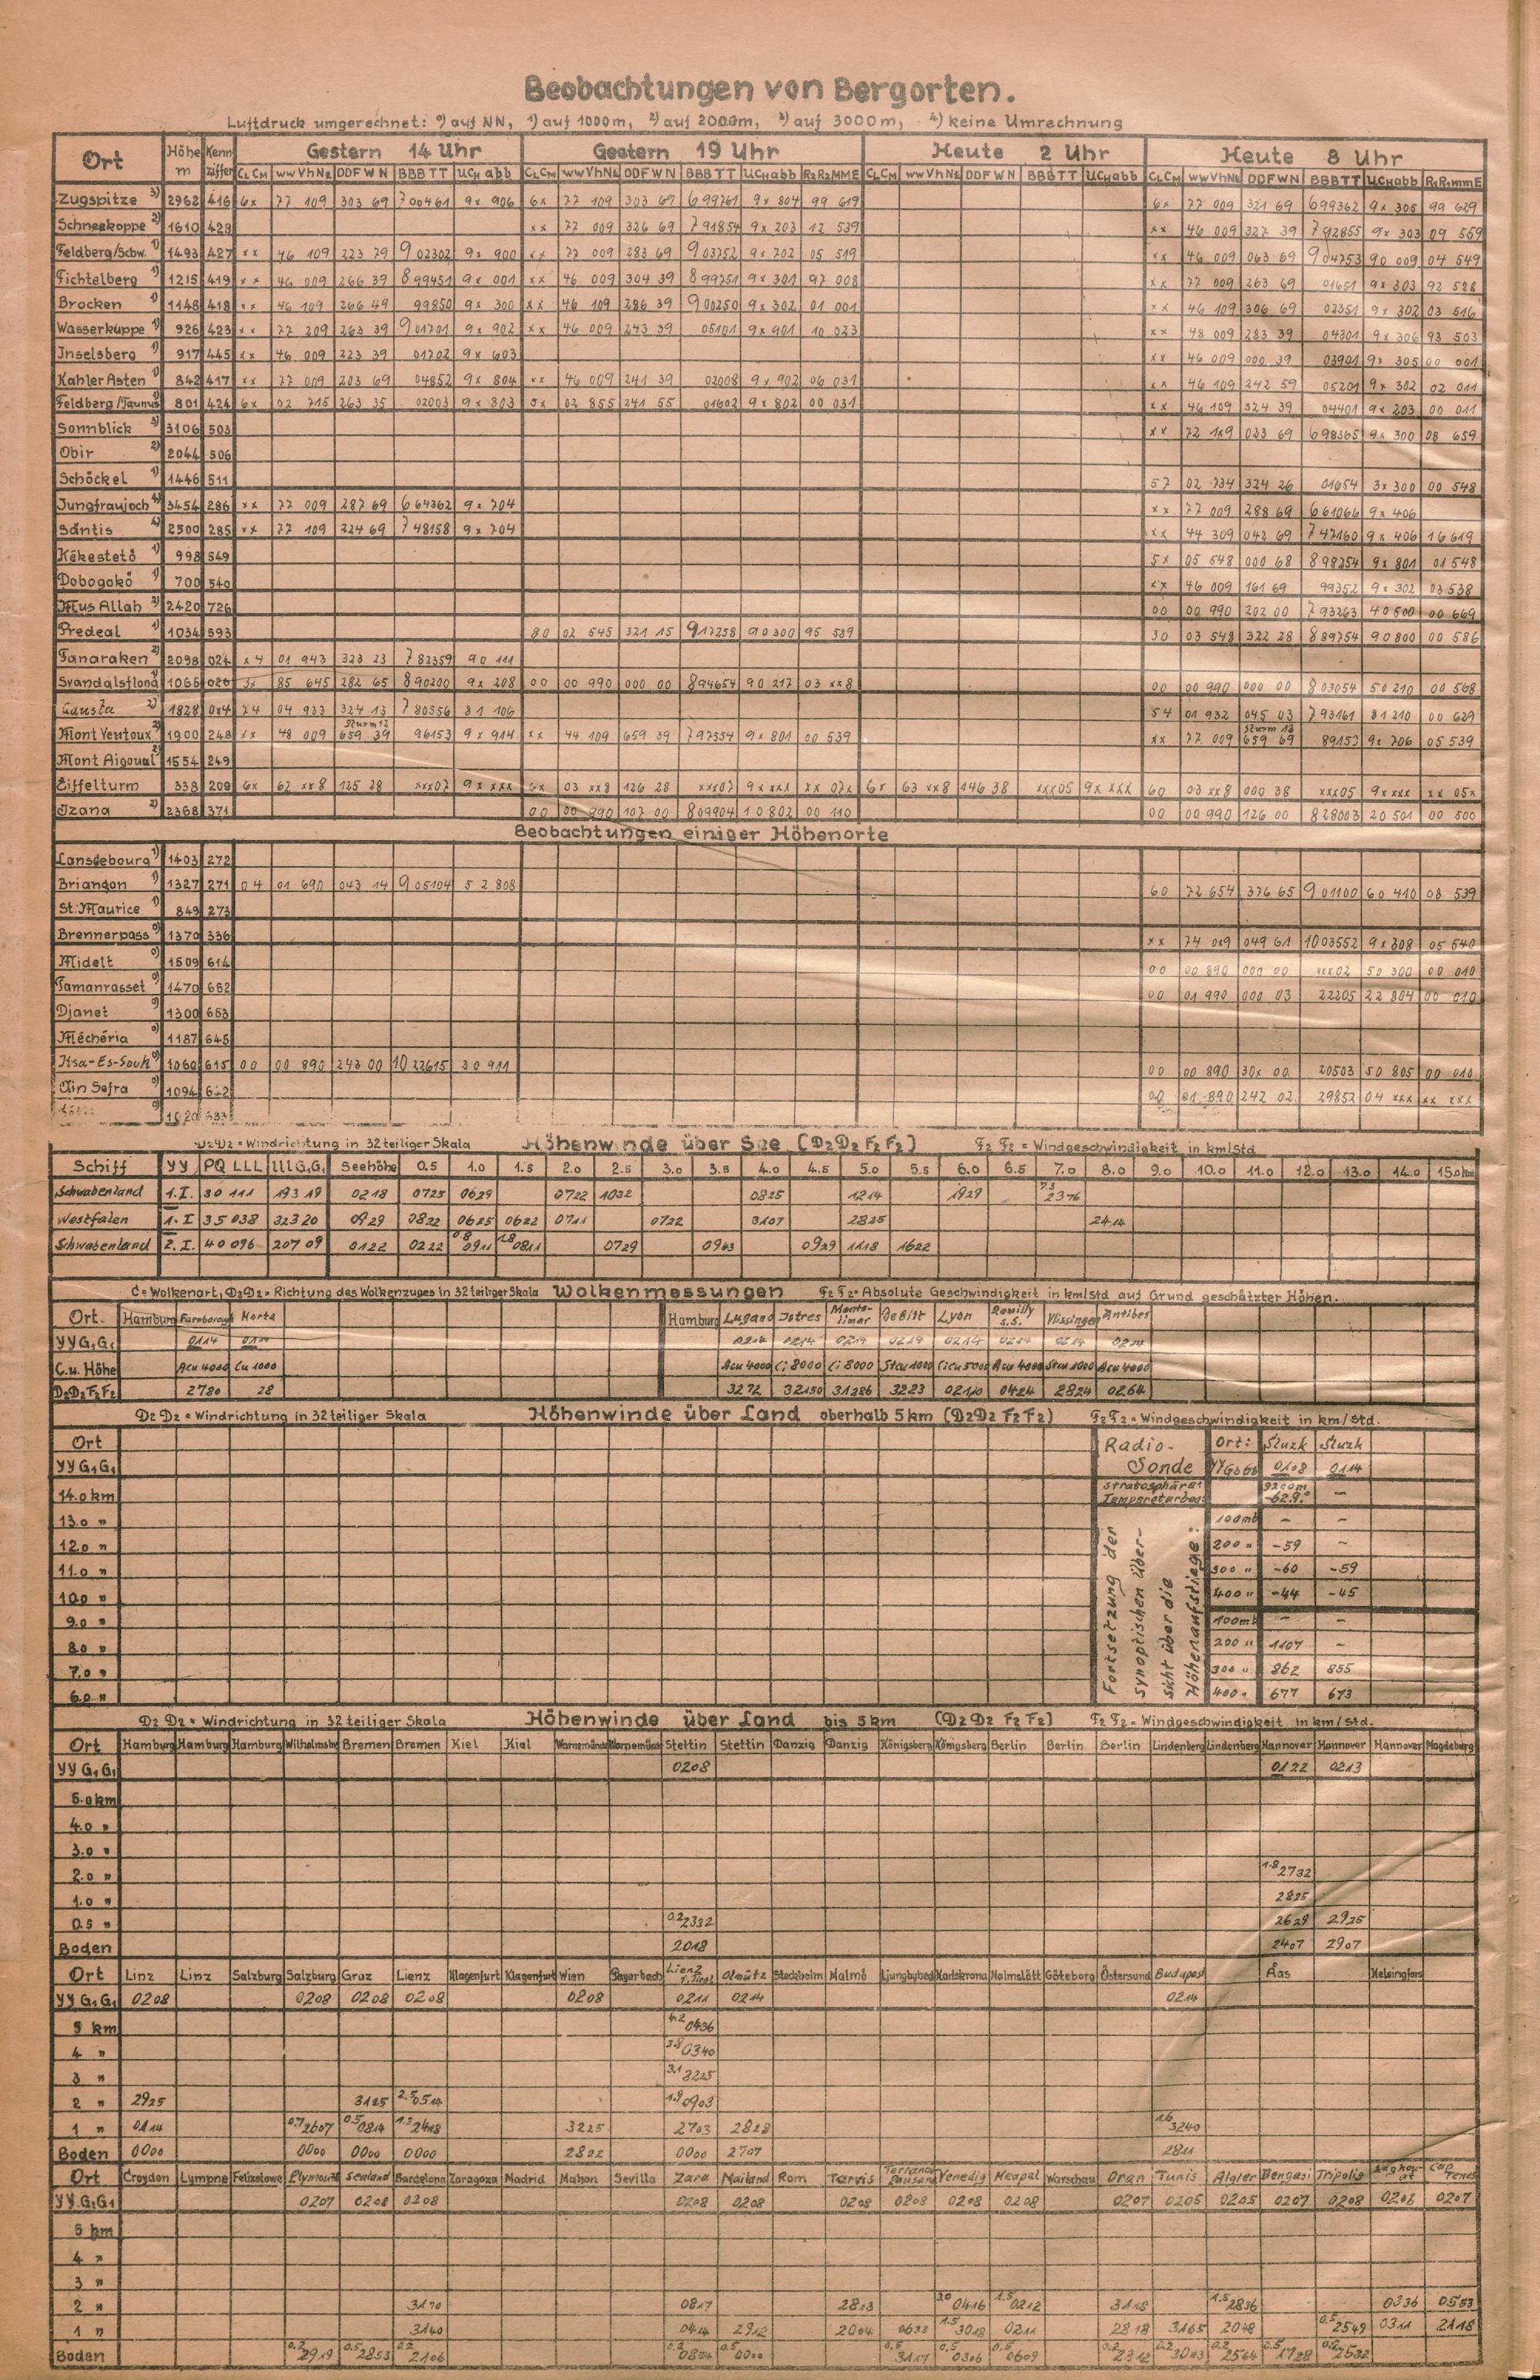 Beobachtungen von Bergorten.
Luftdruck umgerechnet: 0) auf NN, 1) auf 1000m, 2) auf 2000m, 3) auf 3000m, 4) keine Umrechnung
Ort Höhe m Kennziffer Gestern 14 Uhr Gestern 19 Uhr Heute 2 Uhr Heute 8 Uhr
CLCM wwVhNh DDFWN BBBTT UCHabb CLCM wwVhNh DDFWN BBBTT UCHabb R2R2MME CLCM wwVhNh DDFWN BBBTT UCHabb CLCM wwVhNh DDFWN BBBTT UCHabb
Zugspitze 3) 2962 416 6x 77 109 303 69 700461 9x 906 6x 77 109 303 69 699761 9x 804 99 619 6x 77 009 321 69 699362 9x 305 99 629
Schneekoppe 2) 1610 428 xx 77 009 326 69 791854 9x 203 12 539 xx 46 009 327 39 792855 9x 303 09 559
Feldberg/Schw. 1) 1493 427 xx 46 109 223 79 902302 9x 900 xx 77 009 283 69 903752 9x 702 05 519 xx 46 009 063 69 904753 90 009 04 549
Fichtelberg 1) 1215 419 xx 46 009 266 39 899451 9x 001 xx 46 009 304 39 899751 9x 301 97 008 xx 77 009 263 69 01651 9x 303 92 528
Brocken 1) 1148 418 xx 46 109 266 49 99850 9x 300 xx 46 109 286 39 900250 9x 302 01 001 xx 46 109 306 69 02351 9x 302 03 516
Wasserkuppe 1) 926 423 xx 77 209 263 39 901701 9x 902 xx 46 009 243 39 05101 9x 901 10 023 xx 48 009 283 39 04301 9x 306 93 503
Inselsberg 1) 917 445 xx 46 009 223 39 01702 9x 603 xx 46 009 000 39 03901 9x 305 00 001
Kahler Asten 1) 842 417 xx 77 009 203 69 04852 9x 804 xx 46 009 241 39 02008 9x 902 06 031 xx 46 109 242 59 05201 9x 302 02 011
Feldberg/Taunus 801 424 6x 02 715 263 35 02003 9x 803 5x 02 855 241 55 01602 9x 802 00 031 xx 46 109 324 39 04401 9x 203 00 011
Sonnblick 3) 3106 503 xx 72 1x9 023 69 698365 9x 300 08 659
Obir 2) 2044 506
Schöckel 1) 1446 511 57 02 734 324 26 01654 3x 300 00 548
Jungfraujoch 4) 3454 286 xx 77 009 287 69 664362 9x 704 xx 77 009 288 69 661066 9x 406
Säntis 4) 2500 285 xx 77 109 224 69 748158 9x 704 xx 44 309 042 69 747160 9x 406 16 619
Kékestető 1) 998 549 5x 05 548 000 68 898254 9x 801 01 548
Dobogokö 1) 700 540 xx 46 009 161 69 99352 9x 302 03 538
Mus Allah 2) 2420 726 00 00 990 202 00 793263 40 500 00 669
Predeal 1) 1034 593 80 02 545 321 15 917258 90 300 95 589 30 03 548 322 28 889754 90 800 00 586
Fanaraken 2) 2098 024 x4 01 943 323 23 782359 90 111
Svandalsflona 1) 1066 020 3x 85 645 282 65 890200 9x 208 00 00 990 000 00 894654 90 217 03 xx8 00 00 990 000 00 803054 50 210 00 568
Gausta 2) 1828 04 933 324 13 780556 81 106 54 01 932 045 03 793161 81 210 00 629
Mont Ventoux 2) 1900 248 xx 48 009 Sturm 12 659 39 96153 9x 914 xx 44 109 659 39 797354 9x 801 00 539 xx 77 009 659 69 89157 9x 706 05 539
Mont Aigoual 2) 1554 249
Eiffelturm 338 209 6x 62 xx8 125 28 xxx07 9x xxx 6x 03 xx8 126 28 xxx07 9x xxx xx 07x 6x 63 xx8 146 38 xxx05 9x xxx 60 03 xx8 000 38 xxx05 9x xxx xx 05x
Izana 2) 2368 371 00 00 990 107 00 809904 10 802 00 110 00 00 990 126 00 828003 20 501 00 500
Beobachtungen einiger Höhenorte
Lanslebourg 1) 1403 272
Briançon 1) 1327 271 04 01 690 043 14 905104 52 808 60 72 654 376 65 901100 60 410 08 539
St. Maurice 1) 849 273
Brennerpass 0) 1370 336 xx 74 0x9 049 61 1003552 9x 308 05 540
Midelt 0) 1509 614 00 00 890 000 00 xxx02 50 300 00 010
Tamanrasset 0) 1470 652 00 01 990 000 03 22205 22 804 00 010
Djanet 0) 1300 653
Méchéria 0) 1187 645
Itsa-Es-Souk 0) 1060 615 00 00 890 243 00 1022615 30 911 00 00 890 30x 00 20503 50 805 00 010
Ain Sefra 0) 1094 642 00 01 890 242 02 29852 04 xxx xx xxx
D2D2 = Windrichtung in 32teiliger Skala Höhenwinde über See (D2D2 F2F2) F2F2 = Windgeschwindigkeit in km/Std
Schiff YY PQ LLL lllG1G1 Seehöhe 0.5 1.0 1.5 2.0 2.5 3.0 3.5 4.0 4.5 5.0 5.5 6.0 6.5 7.0 8.0 9.0 10.0 11.0 12.0 13.0 14.0 15.0 km
Schwabenland 1.I. 30 111 193 19 0218 0725 0629 0722 1032 0825 1214 1929 7.3 2376
Westfalen 1.I 35 038 323 20 0929 0822 0625 0622 0711 0722 3107 2825 2414
Schwabenland 2.I. 40 096 207 09 0122 0222 0.8 0911 1.8 0811 0729 0943 0929 1118 1622
C = Wolkenart, D2D2 = Richtung des Wolkenzuges in 32teiliger Skala Wolkenmessungen F2F2 = Absolute Geschwindigkeit in km/Std auf Grund geschätzter Höhen.
Ort. Hamburg Farnborough Horta Hamburg Lugano Istres Monte-limar De Bilt Lyon Romilly s.S. Vlissingen Antibes
YYG1G1 0114 0214 0214 0214 0214 0214 0214 0214 0214
C.u. Höhe Acu 4000 Cu 1000 Acu 4000 Ci 8000 Ci 8000 Stcu 1000 Cicu 5000 Acu 4000 Stcu 1000 Acu 4000
D2D2F2F2 2780 28 3272 32150 31286 3223 0424 2824 0264
D2D2 = Windrichtung in 32teiliger Skala Höhenwinde über Land oberhalb 5km (D2D2 F2F2) F2F2 = Windgeschwindigkeit in km/Std.
Ort
YYG1G1
14.0 km
13.0 "
12.0 "
11.0 "
10.0 "
9.0 "
8.0 "
7.0 "
6.0 "
Radio-Sonde Ort: Sluzk Sluzk
0108 0114
Fortsetzung der synoptischen Übersicht über die Höhenaufstiege:
100mb – –
200 " -59 –
300 " -60 -59
400 " -44 -45
100mb – –
200 " 1107 –
300 " 862 855
400 " 677 673
D2D2 = Windrichtung in 32teiliger Skala Höhenwinde über Land bis 5km (D2D2 F2F2) F2F2 = Windgeschwindigkeit in km/Std.
Ort Hamburg Hamburg Hamburg Wilhelmshv Bremen Bremen Kiel Kiel Warnemünde Warnemünde Stettin Stettin Danzig Danzig Königsberg Königsberg Berlin Berlin Berlin Lindenberg Lindenberg Hannover Hannover Hannover Magdeburg
YYG1G1 0208 0122 0213
5.0 km
4.0 "
3.0 "
2.0 " 1.8 2732
1.0 " 2825
0.5 " 0.2 2332 2629 2925
Boden 2018 2407 2907
Ort Linz Linz Salzburg Salzburg Graz Lienz Klagenfurt Klagenfurt Wien Payerbach Lienz i. Tirol Olmütz Stockholm Malmö Ljungbyhed Karlskrona Malmslätt Göteborg Östersund Budapest Ås Helsingfors
YYG1G1 0208 0208 0208 0208 0208 0211 0214 0214
5 km 4.2 0436
4 " 3.8 0340
3 " 3.1 3225
2 " 2925 3125 2.5 0514 1.9 0903
1 " 0114 0.7 2607 0.5 0814 1.3 2418 3225 2703 2828 1.6 3240
Boden 0000 0000 0000 0000 2822 0000 2707 2811
Ort Croydon Lympne Felixstowe Plymouth Sealand Barcelona Zaragoza Madrid Mahon Sevilla Zara Mailand Rom Tarvis Venedig Neapel Warschau Oran Tunis Algier Bengasi Tripolis Laghouat Cap Tenes
YYG1G1 0207 0208 0208 0208 0208 0208 0208 0208 0208 0207 0205 0205 0207 0208 0208 0207
5 km
4 "
3 "
2 " 3170 0817 2813 2.0 0416 1.5 0212 3118 1.5 2836 0336 0553
1 " 3140 0414 2912 2004 0632 1.5 3018 0211 2818 3165 2048 0.5 2549 0311 2118
Boden 0.2 2919 0.5 2853 0.2 2106 0.2 0804 0.5 0000 0.5 3117 0.5 0306 0.5 0609 0.2 2312 0.2 3003 0.2 2564 0.5 1728 2532